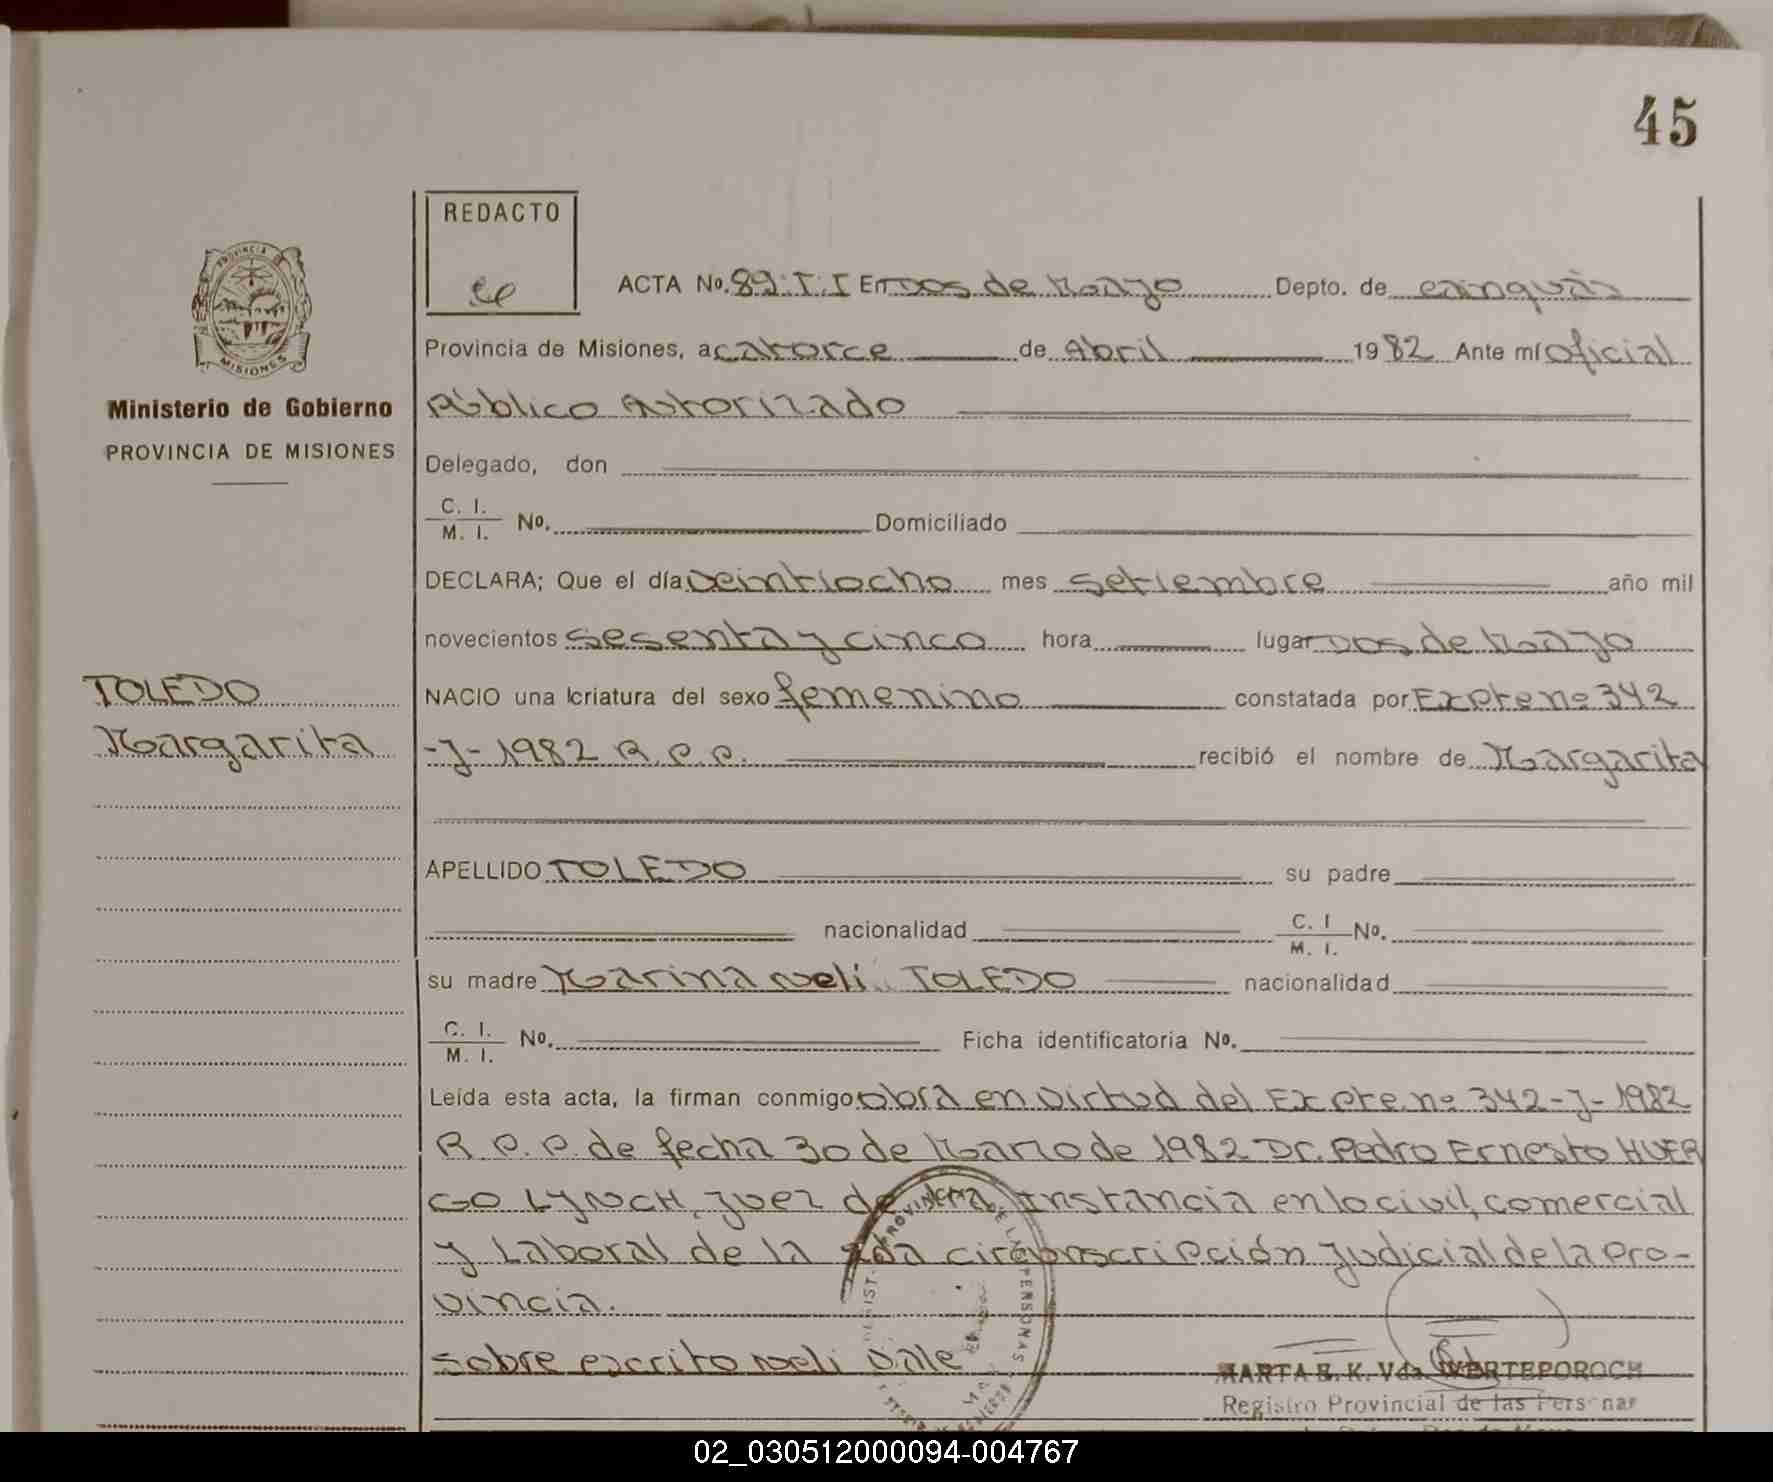 45
REDACTO
ACTA No. 89. T. I En Dos de Mayo Depto. de Cainguás
Provincia de Misiones, a catorce de Abril 1982 Ante mí oficial
Público Autorizado
Delegado, don
C. I. / M. I. No. Domiciliado
DECLARA; Que el día veintiocho mes setiembre año mil
novecientos sesenta y cinco hora lugar Dos de Mayo
NACIO una criatura del sexo femenino constatada por Expte nº 342
-J- 1982 R. P. P. recibió el nombre de Margarita
APELLIDO TOLEDO su padre
nacionalidad C. I / M. I. No.
su madre Marina Neli TOLEDO nacionalidad
C. I. / M. I. No. Ficha identificatoria No.
Leída esta acta, la firman conmigo obra en virtud del Expte. nº 342-J-1982
R. P. P. de fecha 30 de Marzo de 1982 Dr. Pedro Ernesto HUER
GO LYNCH, Juez de 1ra Instancia en lo civil, comercial
y Laboral de la 2da circunscripción Judicial de la Pro-
vincia.
sobre escrito Neli Vale
MARTA E. K. Vda. WERTEPOROCH
Registro Provincial de las Personas
PROVINCIA
MISIONES
Ministerio de Gobierno
PROVINCIA DE MISIONES
TOLEDO
Margarita
PROVINCIAL DE LAS PERSONAS
02_030512000094-004767